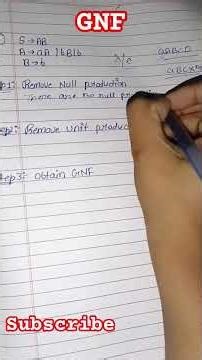 GNF
S → AB
A → aA | bB | b
B → b
Step1: Remove Null production
There are no null pr
Step2: Remove unit produc
Step3: Obtain GNF
Subscribe